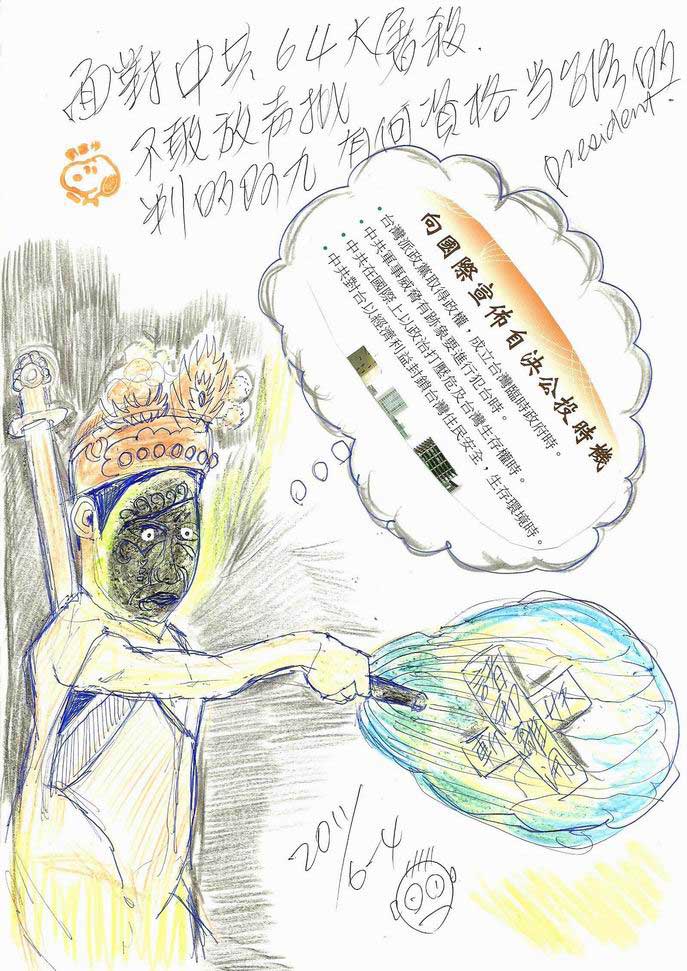 面對中共64大屠殺.
不敢放声批
判的阿九 有何資格当台灣的
president
向國際宣佈自決公投時機
•台灣派政黨取得政權，成立台灣臨時政府時。
•中共軍事威脅有跡象要進行犯台時。
•中共在國際上以政治打壓危及台灣生存權時。
•中共對台以經濟利益封鎖台灣住民安全，生存環境時。
2011/6-4